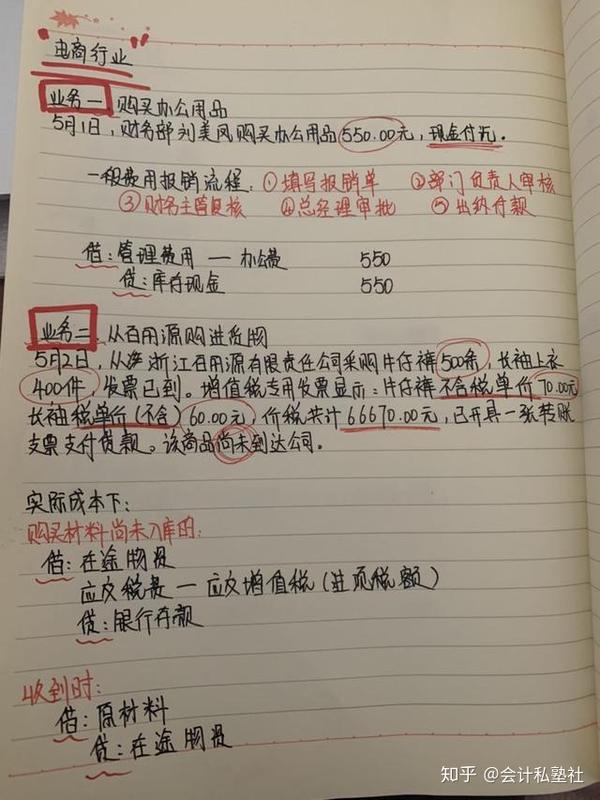 "电商行业"
业务一 购买办公用品
5月1日,财务部刘美凤购买办公用品550.00元,现金付讫。
一般费用报销流程:①填写报销单 ②部门负责人审核
③财务主管复核 ④总经理审批 ⑤出纳付款
借:管理费用—办公费 550
贷:库存现金 550
业务二 从百用源购进货物
5月2日,从浙江百用源有限责任公司采购牛仔裤500条,长袖上衣
400件,发票已到。增值税专用发票显示:牛仔裤不含税单价70.00元
长袖税单价(不含)60.00元,价税共计66670.00元,已开具一张转账
支票支付货款。该商品尚未到达公司。
实际成本下:
购买材料尚未入库的:
借:在途物资
应交税费—应交增值税(进项税额)
贷:银行存款
收到时:
借:原材料
贷:在途物资
知乎 @会计私塾社